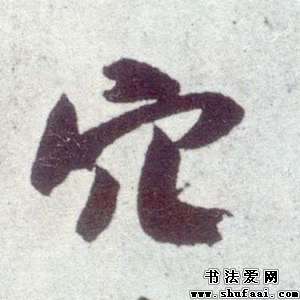 穴
书法爱网
www.shufaai.com